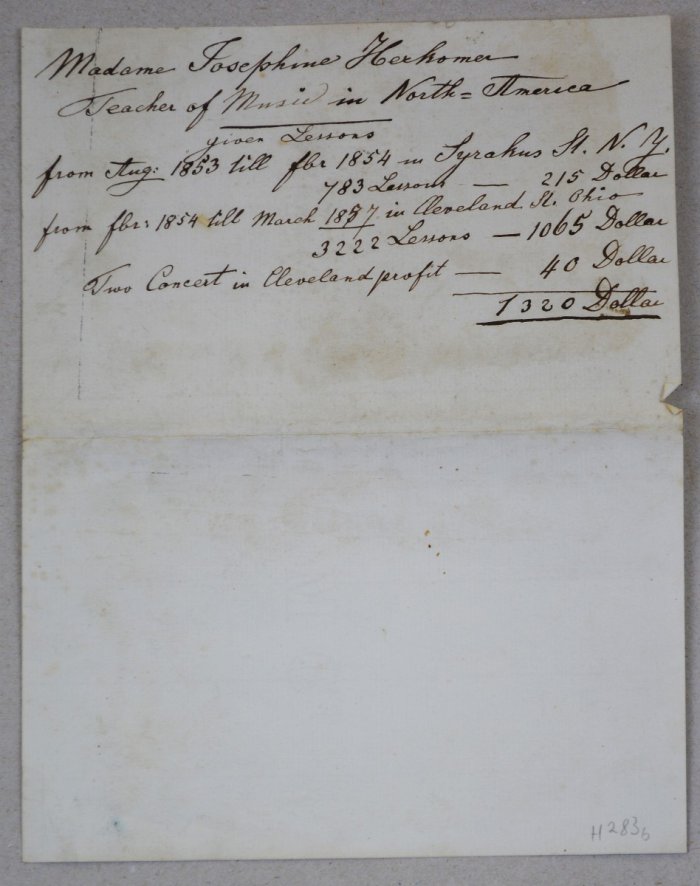 Madame Josephine Herkomer
Teacher of Music in North=America
given Lessons
from Aug: 1853 till fbr 1854 in Syrakus St. N. Y.
783 Lessons — 215 Dollar
from fbr: 1854 till March 1857 in Cleveland St. Ohio
3222 Lessons — 1065 Dollar
Two Concert in Cleveland profit — 40 Dollar
1320 Dollar
H283b